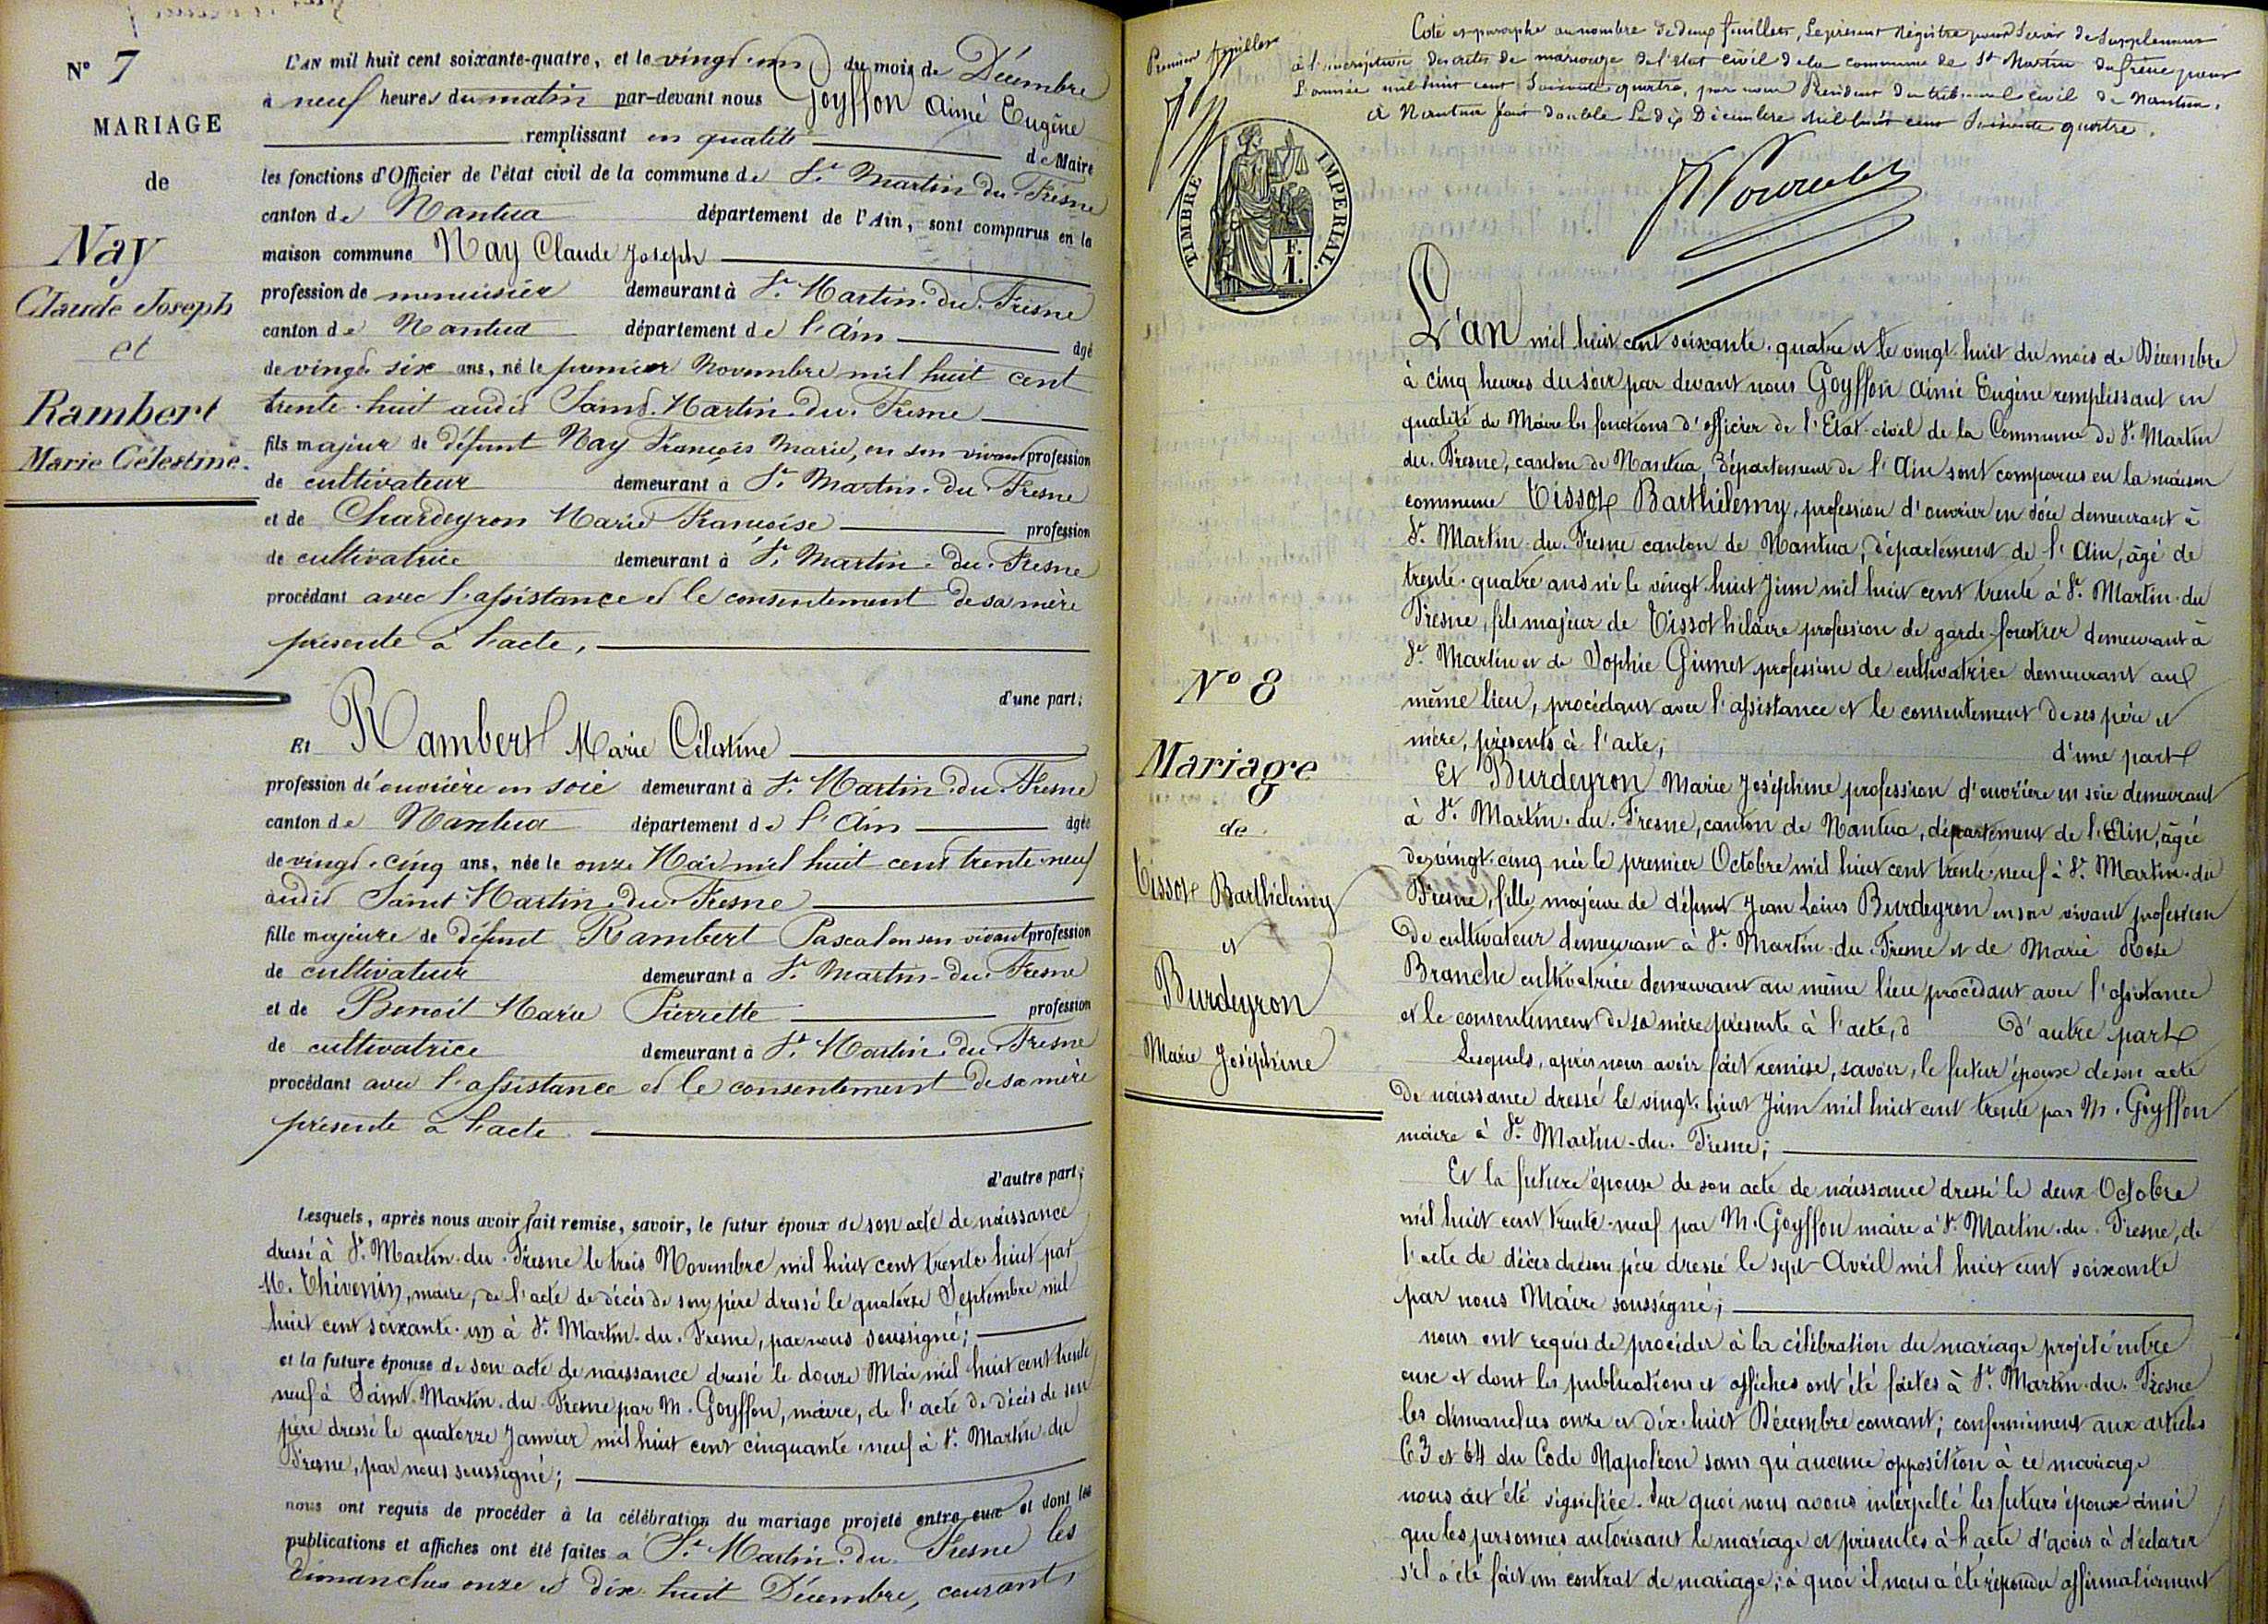 N° 7
MARIAGE
de
Nay
Claude Joseph
et
Rambert
Marie Célestine.
L'AN mil huit cent soixante-quatre, et le vingt-un du mois de Décembre
à neuf heures du matin par-devant nous Goyffon Aimé Eugène
remplissant en qualité de Maire
les fonctions d'Officier de l'état civil de la commune de St Martin du Fresne
canton de Nantua département de l'Ain, sont comparus en la
maison commune Nay Claude Joseph
profession de menuisier demeurant à St Martin-du-Fresne
canton de Nantua département de l'Ain âgé
de vingt-six ans, né le premier Novembre mil huit cent
trente-huit audit Saint-Martin-du-Fresne
fils majeur de défunt Nay François Marie, en son vivant profession
de cultivateur demeurant à St Martin-du-Fresne
et de Chardeyron Marie Françoise profession
de cultivatrice demeurant à St Martin-du-Fresne
procédant avec l'assistance et le consentement de sa mère
présente à l'acte,
d'une part;
Et Rambert Marie Célestine
profession d'ouvrière en soie demeurant à St Martin-du-Fresne
canton de Nantua département de l'Ain âgée
de vingt-cinq ans, née le onze Mai mil huit cent trente-neuf
audit Saint Martin-du-Fresne
fille majeure de défunt Rambert Pascal en son vivant profession
de cultivateur demeurant à St Martin-du-Fresne
et de Benoit Marie Pierrette profession
de cultivatrice demeurant à St Martin-du-Fresne
procédant avec l'assistance et le consentement de sa mère
présente à l'acte
d'autre part;
Lesquels, après nous avoir fait remise, savoir, le futur époux de son acte de naissance
dressé à St Martin-du-Fresne le trois Novembre mil huit cent trente-huit par
M. Thévenin, maire, de l'acte de décès de son père dressé le quatorze Septembre mil
huit cent soixante-un à St Martin-du-Fresne, par nous soussigné;
et la future épouse de son acte de naissance dressé le douze Mai mil huit cent trente
neuf à Saint-Martin-du-Fresne par M. Goyffon, maire, de l'acte de décès de son
père dressé le quatorze Janvier mil huit cent cinquante-neuf à St Martin-du
Fresne, par nous soussigné;
nous ont requis de procéder à la célébration du mariage projeté entre eux et dont les
publications et affiches ont été faites à St Martin-du-Fresne les
dimanches onze et dix-huit Décembre, courant,
Premier feuillet
Coté et paraphé au nombre de deux feuillets, le présent régistre pour servir de supplément
à l'inscription des actes de mariage de l'état civil de la commune de St Martin du frêne pour
l'année mil huit cent soixante quatre, par nous Président du tribunal civil de Nantua.
à Nantua fait double le dix Décembre mil huit cent soixante quatre.
TIMBRE IMPERIAL.
F.
1.
N° 8
Mariage
de
Tissot Barthélemy
et
Burdeyron
Marie Joséphine
L'an mil huit cent soixante-quatre et le vingt-huit du mois de Décembre
à cinq heures du soir par devant nous Goyffon Aimé Eugène remplissant en
qualité de Maire les fonctions d'officier de l'Etat-civil de la Commune de St Martin
du-Fresne, canton de Nantua, Département de l'Ain sont comparus en la maison
commune Tissot Barthélemy, profession d'ouvrier en soie demeurant à
St Martin-du-Fresne canton de Nantua, département de l'Ain, âgé de
trente-quatre ans né le vingt-huit Juin mil huit cent trente à St Martin-du
Fresne, fils majeur de Tissot hilaire profession de garde-forestier demeurant à
St Martin et de Sophie Guimet profession de cultivatrice demeurant au
même lieu, procédant avec l'assistance et le consentement de ses père et
mère, présents à l'acte; d'une part
Et Burdeyron Marie Joséphine profession d'ouvrière en soie demeurant
à St Martin-du-Fresne, canton de Nantua, département de l'Ain, âgée
de vingt-cinq née le premier Octobre mil huit cent trente-neuf à St Martin-du
Fresne, fille majeure de défunt Jean Louis Burdeyron en son vivant profession
de cultivateur demeurant à St Martin-du-Fresne et de Marie Rose
Branche cultivatrice demeurant au même lieu procédant avec l'assistance
et le consentement de sa mère présente à l'acte, d'autre part
Lesquels, après nous avoir fait remise, savoir, le futur époux de son acte
de naissance dressé le vingt-huit Juin mil huit cent trente par M. Goyffon
maire à St Martin-du-Fresne;
Et la future épouse de son acte de naissance dressé le deux Octobre
mil huit cent trente-neuf par M. Goyffon maire à St Martin-du-Fresne, de
l'acte de décès de son père dressé le sept Avril mil huit cent soixante
par nous Maire soussigné;
nous ont requis de procéder à la célébration du mariage projeté entre
eux et dont les publications et affiches ont été faites à St Martin-du-Fresne
les dimanches onze et dix-huit Décembre courant; conformément aux articles
63 et 64 du Code Napoléon sans qu'aucune opposition à ce mariage
nous ait été signifiée. Sur quoi nous avons interpellé les futurs époux ainsi
que les personnes autorisant le mariage et présentes à l'acte d'avoir à déclarer
s'il a été fait un contrat de mariage; à quoi il nous a été répondu affirmativement